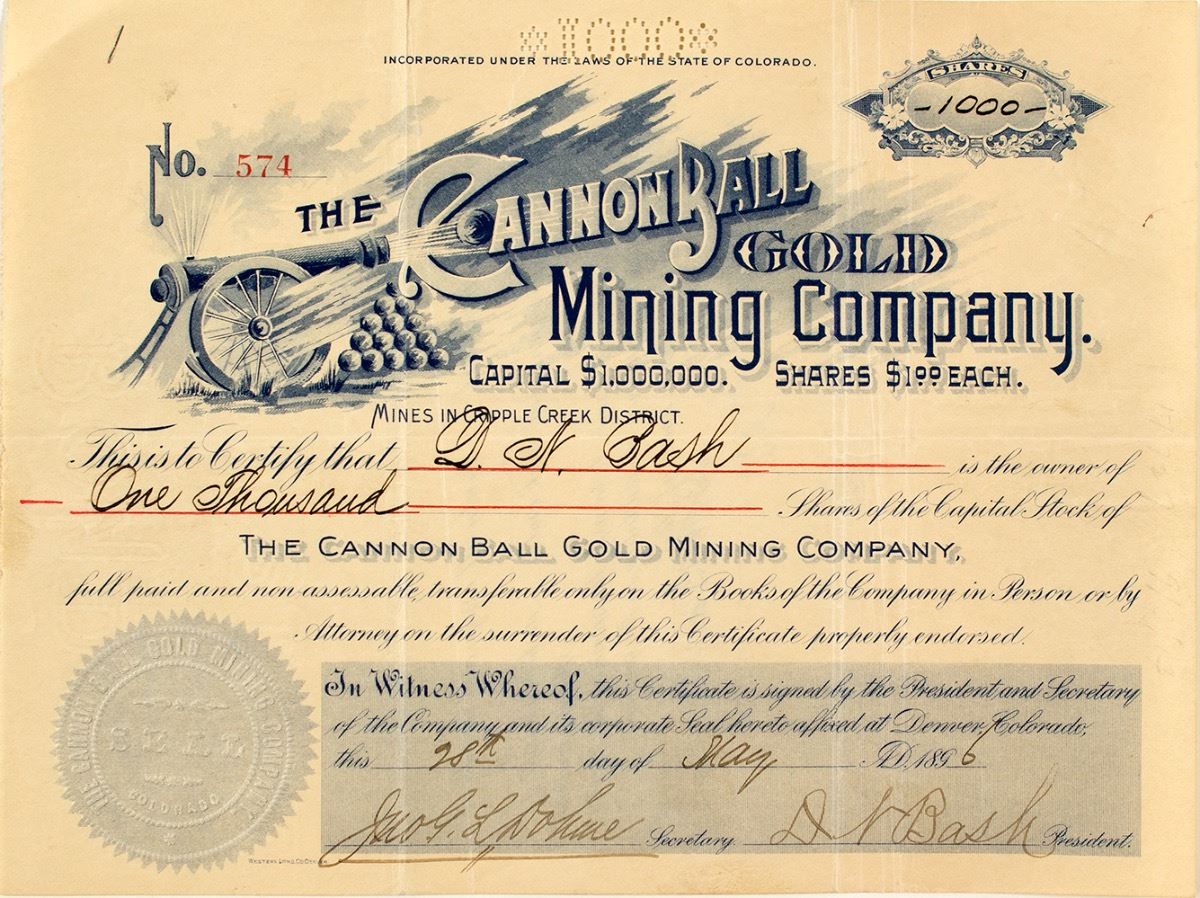 *1000*
INCORPORATED UNDER THE LAWS OF THE STATE OF COLORADO.
SHARES
-1000-
No. 574
THE CANNON BALL
GOLD
MINING COMPANY.
CAPITAL $1,000,000. SHARES $1.00 EACH.
MINES IN CRIPPLE CREEK DISTRICT.
This is to Certify that D. N. Bash is the owner of
One Thousand Shares of the Capital Stock of
THE CANNON BALL GOLD MINING COMPANY,
full paid and non-assessable, transferable only on the Books of the Company in Person or by
Attorney on the surrender of this Certificate properly endorsed.
In Witness Whereof, this Certificate is signed by the President and Secretary
of the Company and its corporate Seal hereto affixed at Denver, Colorado,
this 28th day of May A.D. 1896
Jno G. L. Dohme Secretary. D N Bash President.
THE CANNON BALL GOLD MINING COMPANY
SEAL
COLORADO
WESTERN LITHO. CO. DENVER